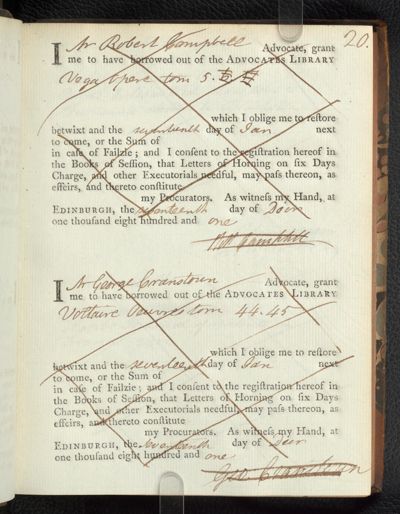 20.
I Mr Robert Campbell Advocate, grant
me to have borrowed out of the ADVOCATES LIBRARY
Vega Opere tom 5.
which I oblige me to restore
betwixt and the seventeenth day of Jan next
to come, or the Sum of
in case of Failzie; and I consent to the registration hereof in
the Books of Session, that Letters of Horning on six Days
Charge, and other Executorials needful, may pass thereon, as
effeirs, and thereto constitute
my Procurators. As witness my Hand, at
EDINBURGH, the seventeenth day of Decm
one thousand eight hundred and one
Robt Campbell
I Mr George Cranstoun Advocate, grant
me to have borrowed out of the ADVOCATES LIBRARY
Voltaire Oeuvres tom 44.45
which I oblige me to restore
betwixt and the seventeenth day of Jan next
to come, or the Sum of
in case of Failzie; and I consent to the registration hereof in
the Books of Session, that Letters of Horning on six Days
Charge, and other Executorials needful, may pass thereon, as
effeirs, and thereto constitute
my Procurators. As witness my Hand, at
EDINBURGH, the seventeenth day of Decm
one thousand eight hundred and one
Geo. Cranstoun